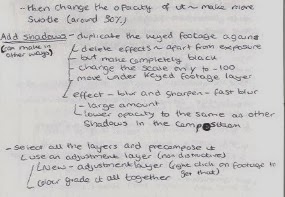 - then change the opacity of it ~ make more
subtle (around 50%)
Add shadows - duplicate the keyed footage again
(can make in
other ways)
delete effects ~ apart from exposure
- but make completely black
- change the scale on y to -100
- move under keyed footage layer
- effect - blur and sharpen - fast blur
- large amount
- lower opacity to the same as other
shadows in the composition
- select all the layers and precompose it
use an adjustment layer (non distructive)
New - adjustment layer (right click on footage to
get that)
colour grade it all together